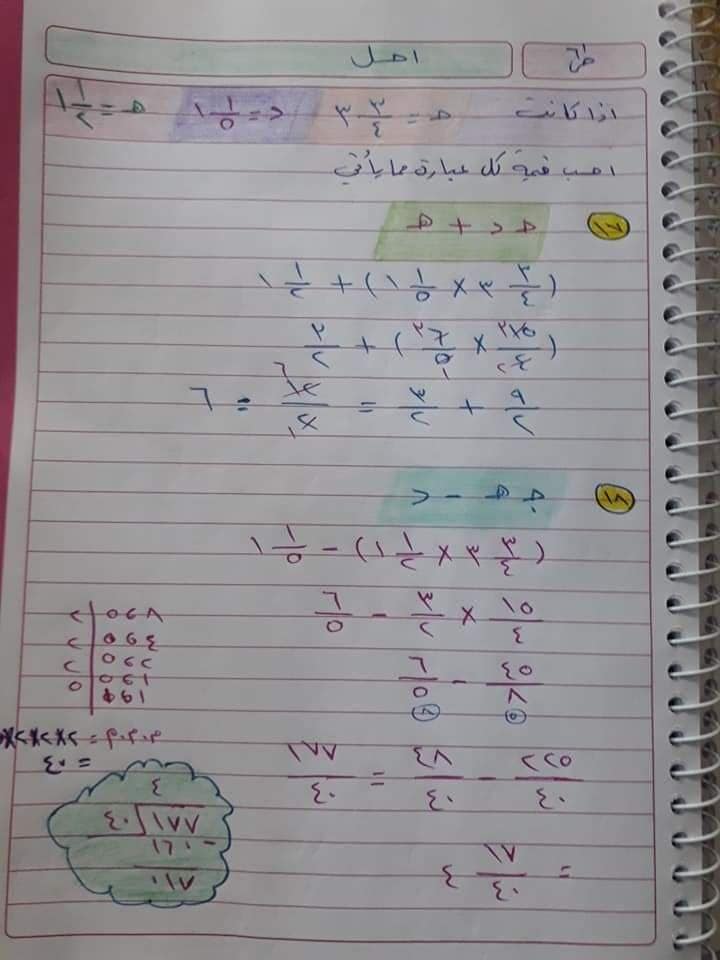 احل
اذا كانت جـ = ٣ ٣/٤ د = ١ ١/٥ هـ = ١ ١/٢
احسب قيمة كل عبارة مما يأتي
جـ د + هـ
(٣ ٣/٤ × ١ ١/٥) + ١ ١/٢
(١٥/٤ × ٦/٥) + ٣/٢
٩/٢ + ٣/٢ = ١٢/٢ = ٦
جـ هـ - د
(٣ ٣/٤ × ١ ١/٢) - ١ ١/٥
١٥/٤ × ٣/٢ - ٦/٥
٤٥/٨ - ٦/٥
٢٢٥/٤٠ - ٤٨/٤٠ = ١٧٧/٤٠
= ٤ ١٧/٤٠
٨ ، ٥ | ٢
٤ ، ٥ | ٢
٢ ، ٥ | ٢
١ ، ٥ | ٥
١ ، ١
= ٢×٢×٢×٥
= ٤٠
٤
٤٠ ١٧٧
- ١٦٠
٠١٧